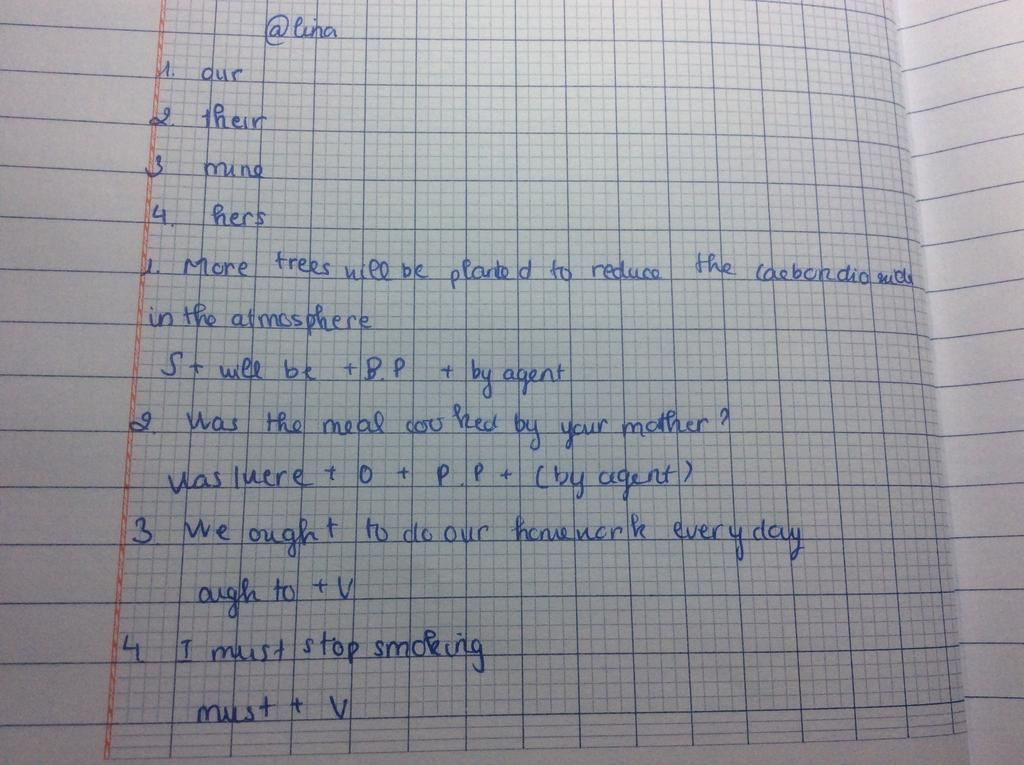 @lina
1. our
2. their
3 mine
4. hers
1. More trees will be planted to reduce the carbondioxide
in the atmosphere
S + will be + P.P + by agent
2. Was the meal cooked by your mother?
Was/were + O + P.P + (by agent)
3 We ought to do our homework every day
ough to + V
4 I must stop smoking
must + V